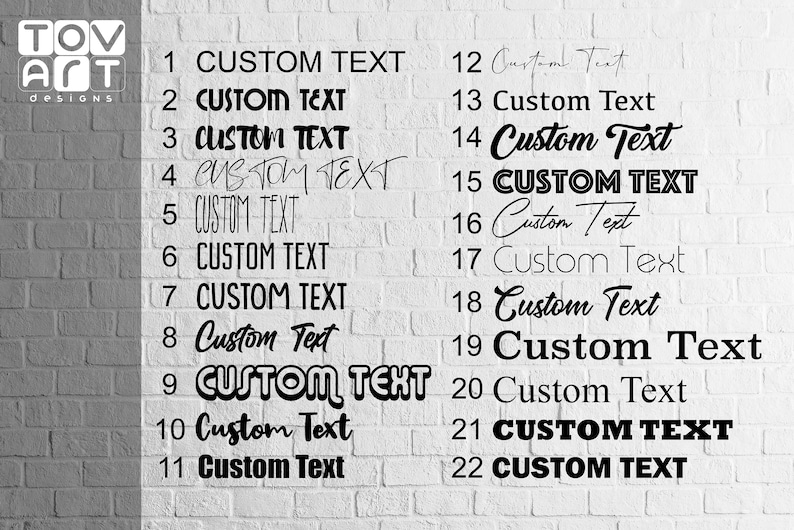 TOV
ART
designs
1 CUSTOM TEXT
2 CUSTOM TEXT
3 CUSTOM TEXT
4 CUSTOM TEXT
5 CUSTOM TEXT
6 CUSTOM TEXT
7 CUSTOM TEXT
8 Custom Text
9 CUSTOM TEXT
10 Custom Text
11 Custom Text
12 Custom Text
13 Custom Text
14 Custom Text
15 CUSTOM TEXT
16 Custom Text
17 Custom Text
18 Custom Text
19 Custom Text
20 Custom Text
21 CUSTOM TEXT
22 CUSTOM TEXT